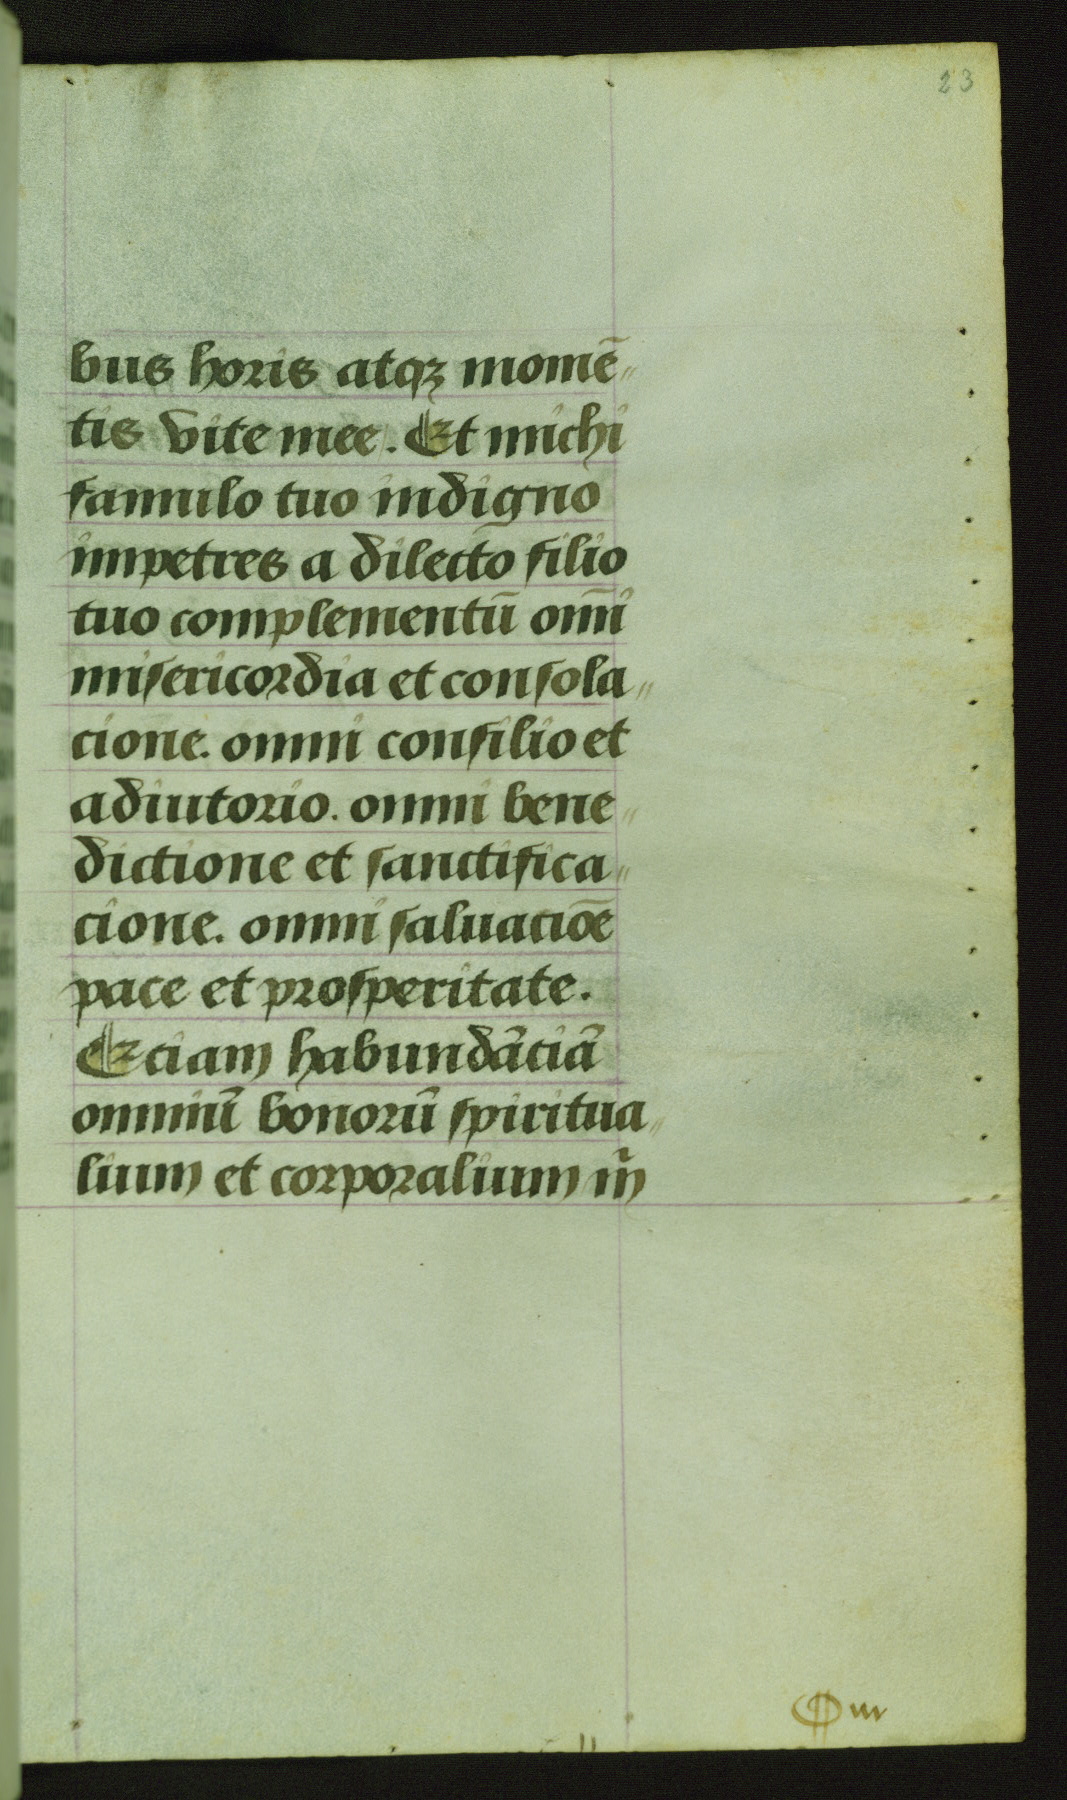 23
bus horis atqꝫ momē„
tis vite mee. Et michi
famulo tuo indigno
impetres a dilecto filio
tuo complementū om̄i
misericordia et consola„
cione. omni consilio et
adiutorio. omni bene„
dictione et sanctifica„
cione. omni saluacio̅e
pace et prosperitate.
Eciam habundāciā
omniū bonorū spiritua„
lium et corporalium m̄